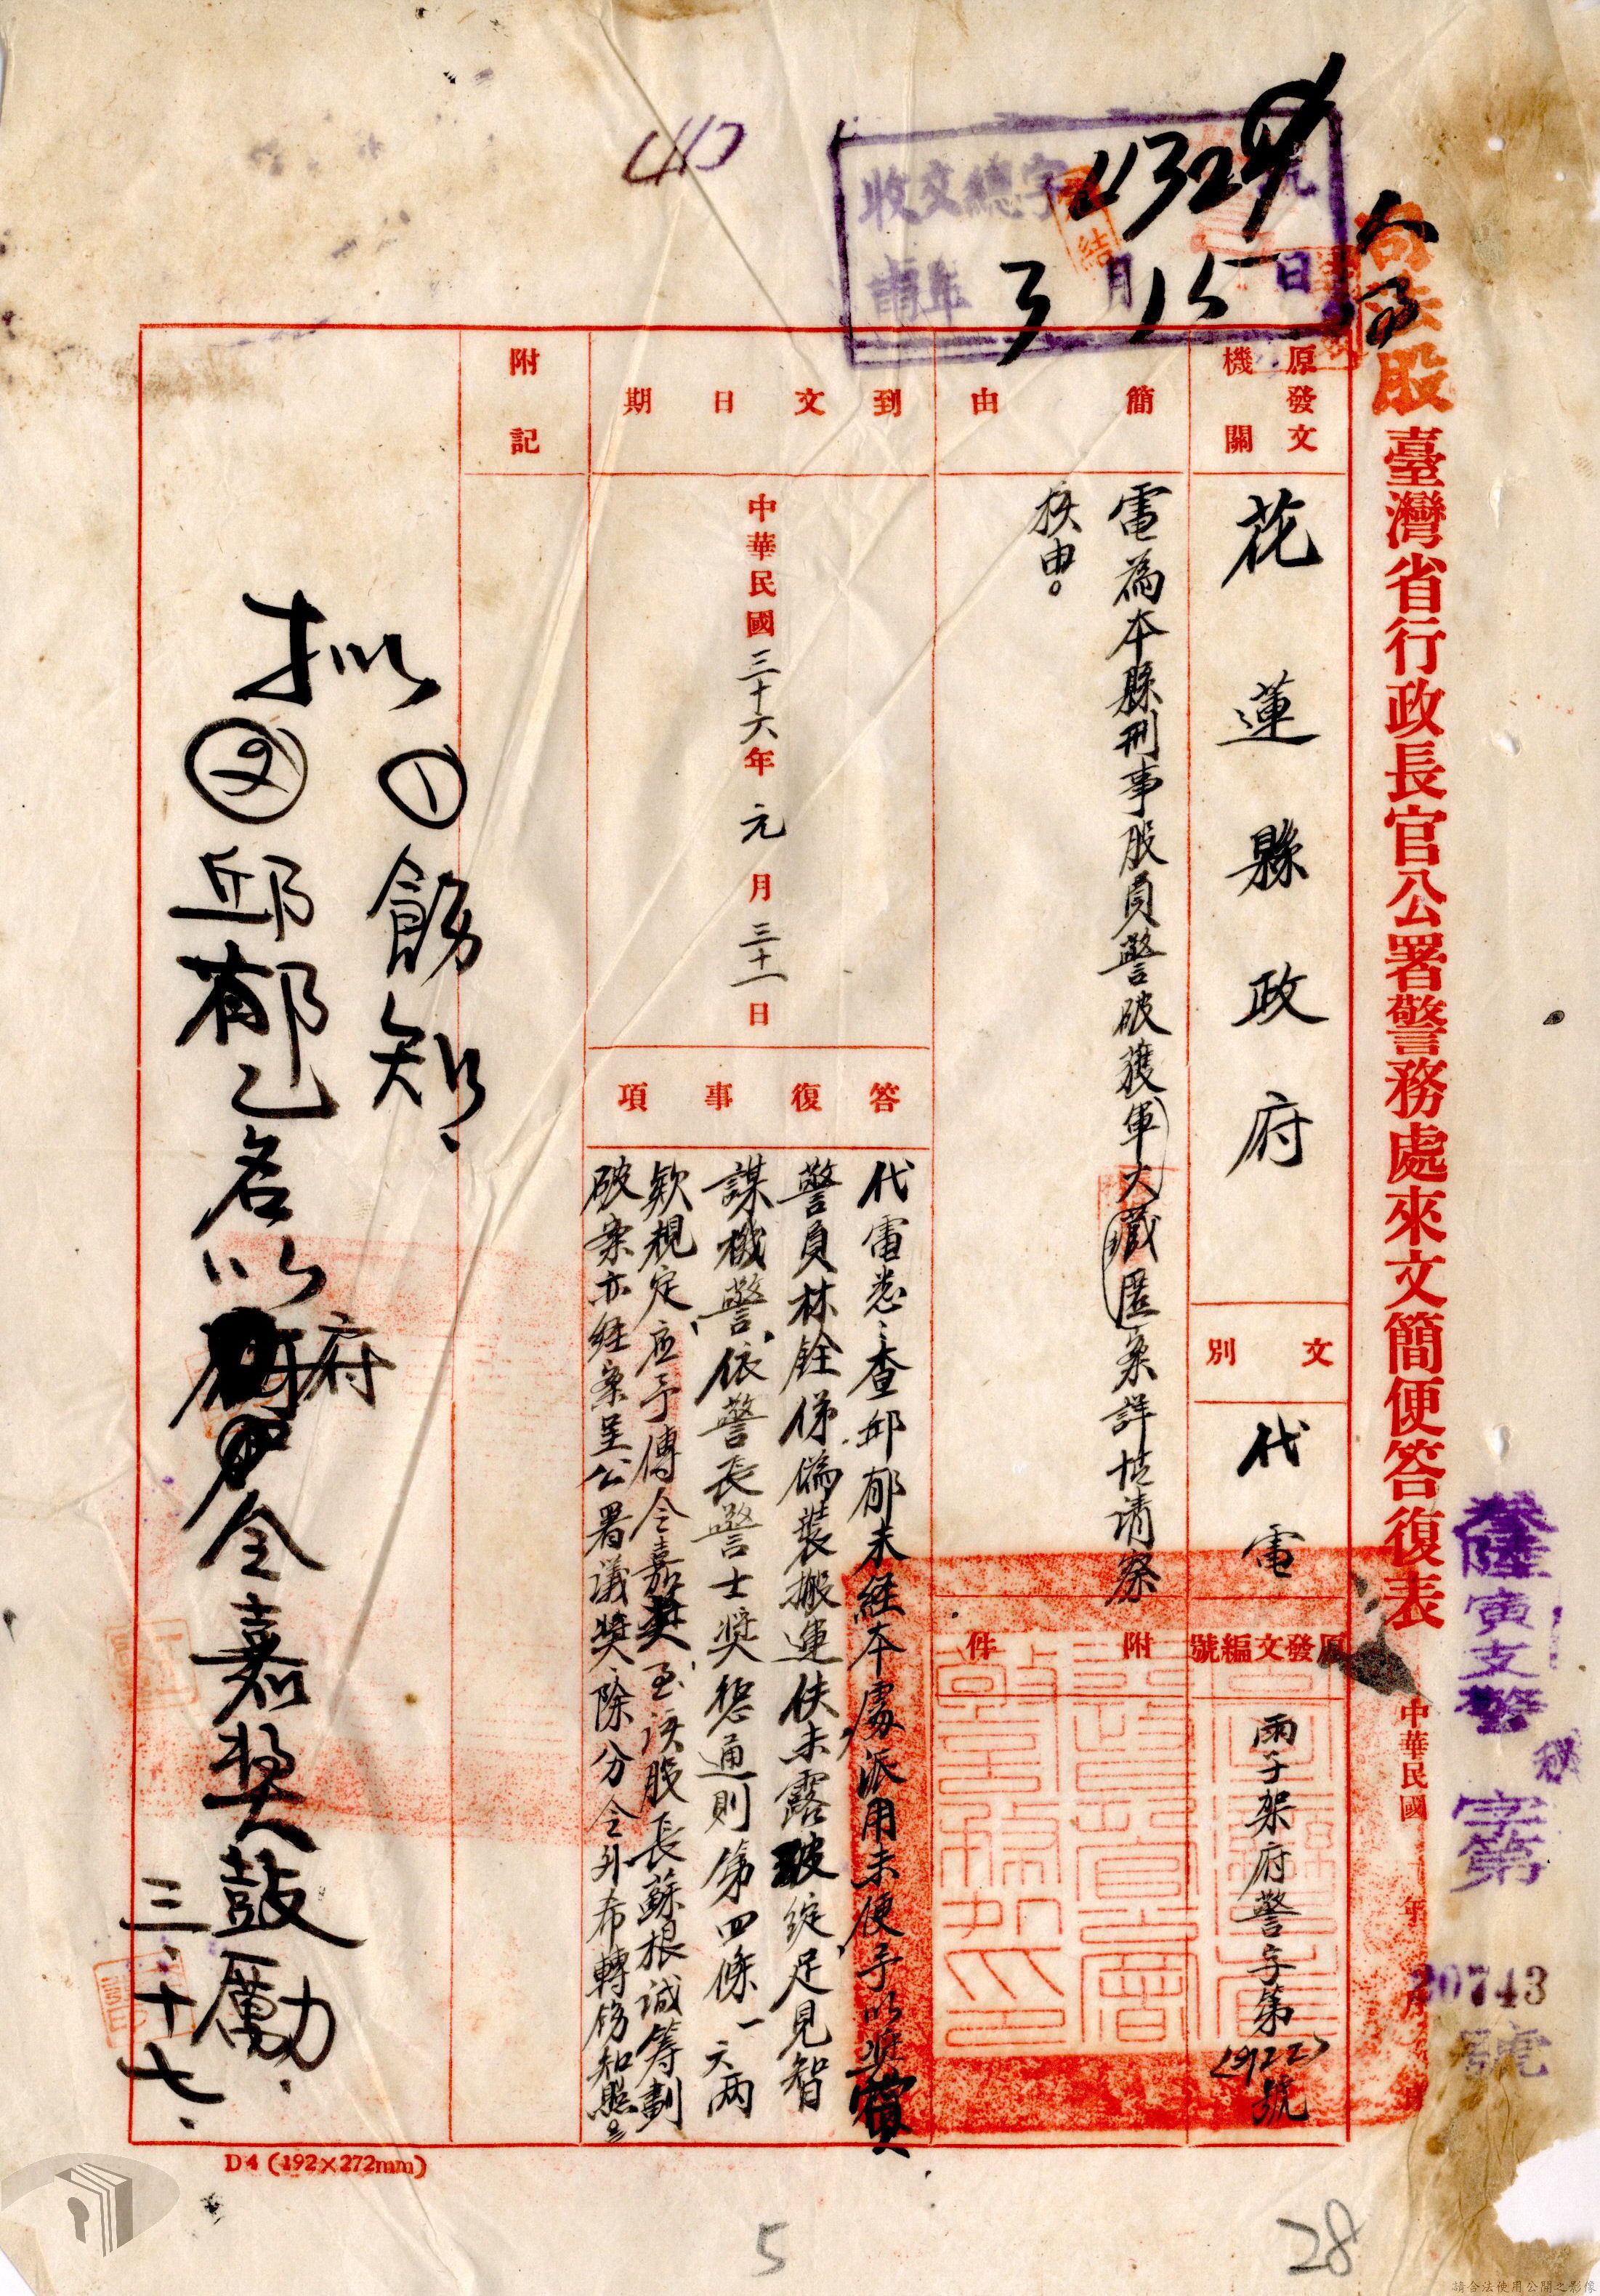 臺灣省行政長官公署警務處來文簡便答復表
中華民國 年 月 日
寅支警
字第
20743
號
司法股
收文總字 11329 號
年 3 月 15 日
原發文機關
花蓮縣政府
文別
代電
原發文編號
府警字第
號
簡由
電為本縣刑事股員警破獲軍火藏匿案詳情請察
核由。
附件
到文日期
中華民國三十六年元月三十一日
答復事項
代電悉:查邱郁未經本處派用未便予以獎賞
警員林銓俤偽裝搬運伕未露破綻足見智
謀機警依警長警士獎懲通則第四條一六兩
欵規定應予傳令嘉獎至該股長蘇根誠籌劃
破案亦經案呈公署議獎除分令外希轉飭知照。
附記
擬
① 飭知.
② 邱郁乙名以府
令嘉獎鼓勵.
三.十七.
D4 (192×272mm)
5
28
請合法使用公開之影像